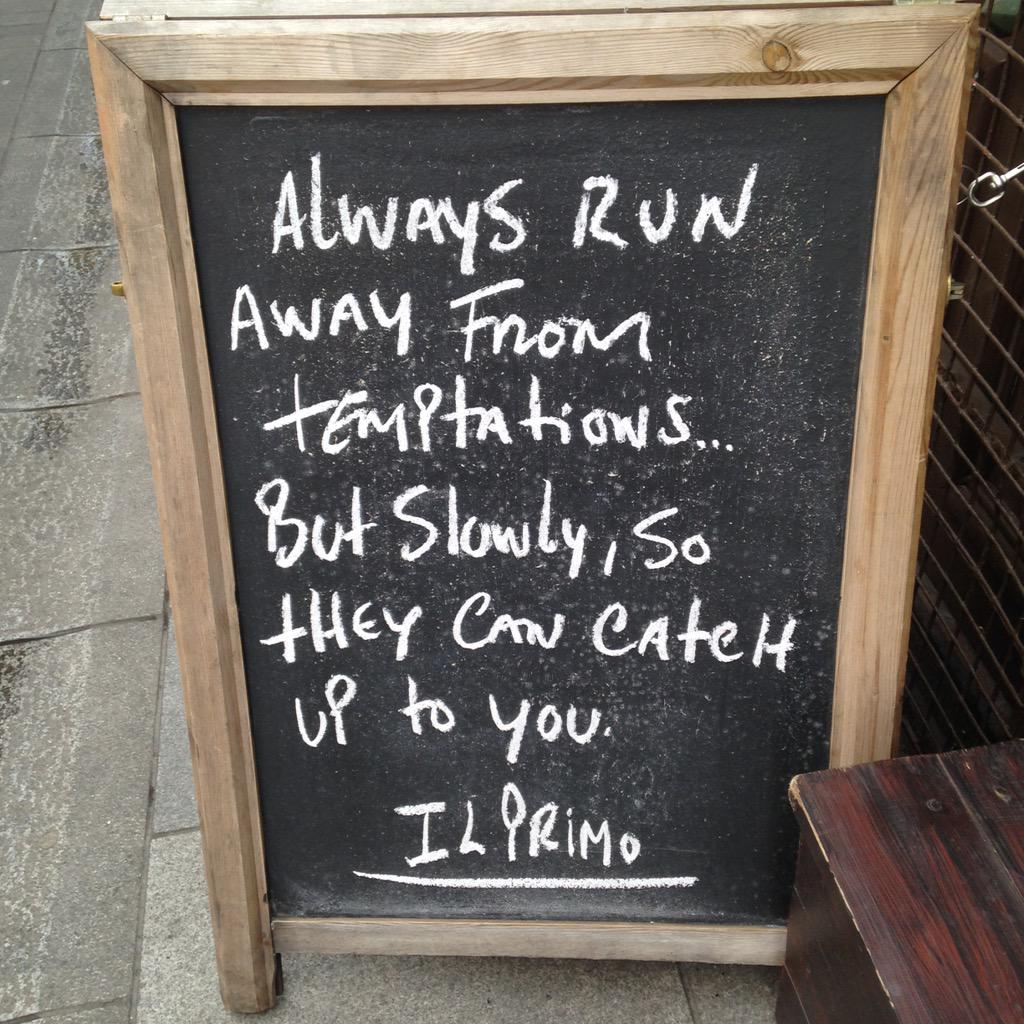 Always Run
Away From
temptations...
But Slowly, So
they Can Catch
up to you.
IL PRIMO